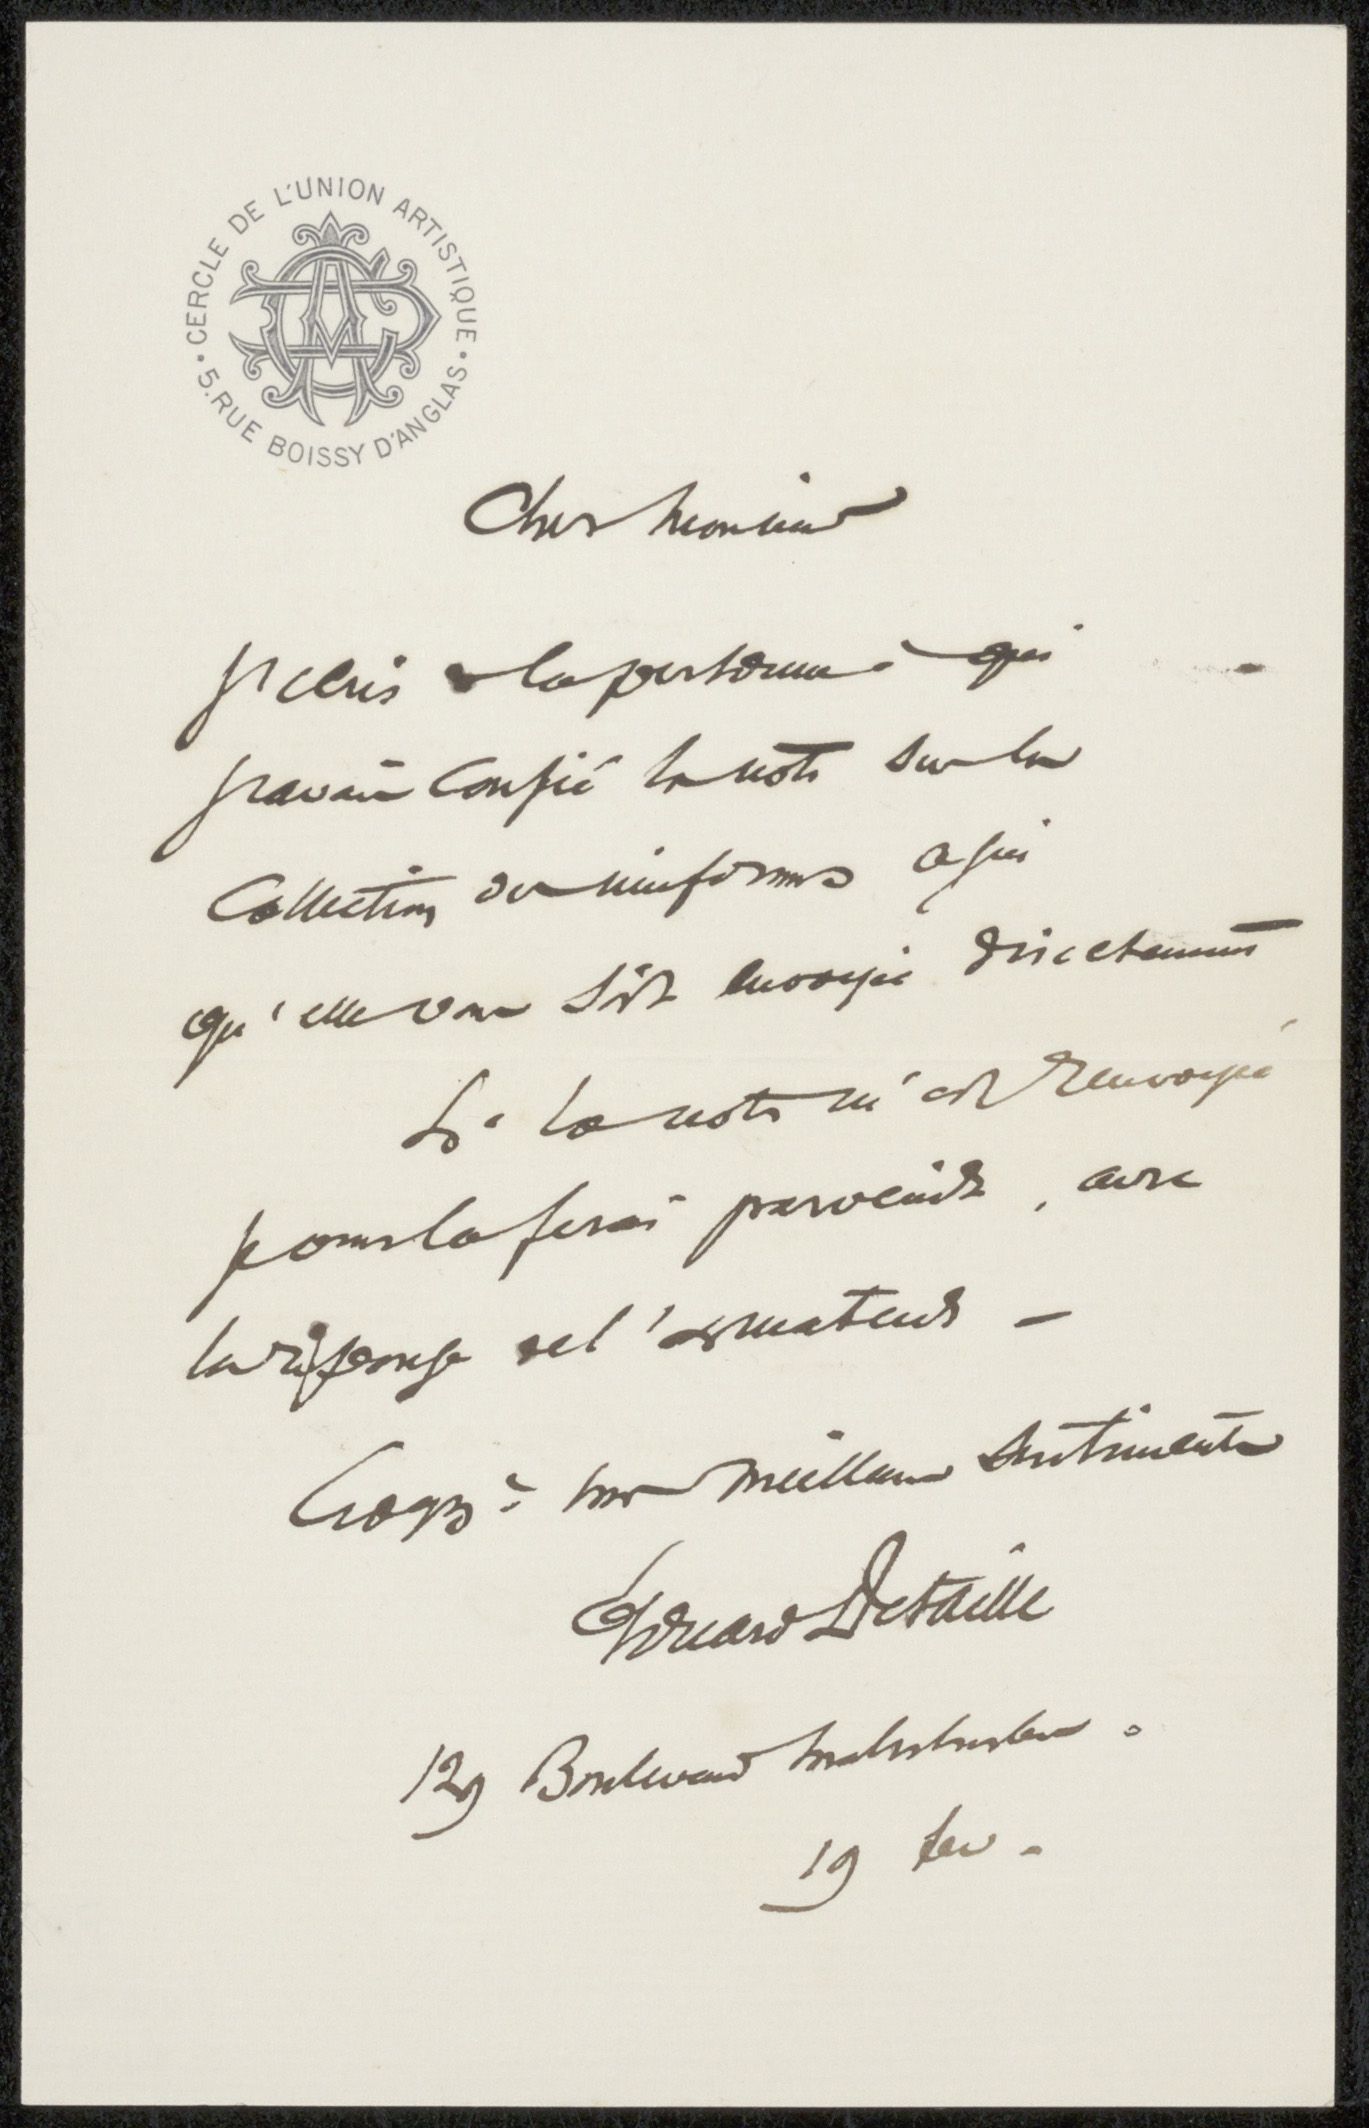 CERCLE DE L'UNION ARTISTIQUE
5. RUE BOISSY D'ANGLAS
Cher Monsieur
J'écris à la personne à qui
j'avais confié la note sur la
Collection des uniformes afin
qu'elle vous soit envoyée directement
Si la note m'est renvoyée
je vous la ferai parvenir, avec
la réponse de l'armateur —
Croyez à mes meilleurs sentiments
Edouard Detaille
129 Boulevard Malesherbes.
19